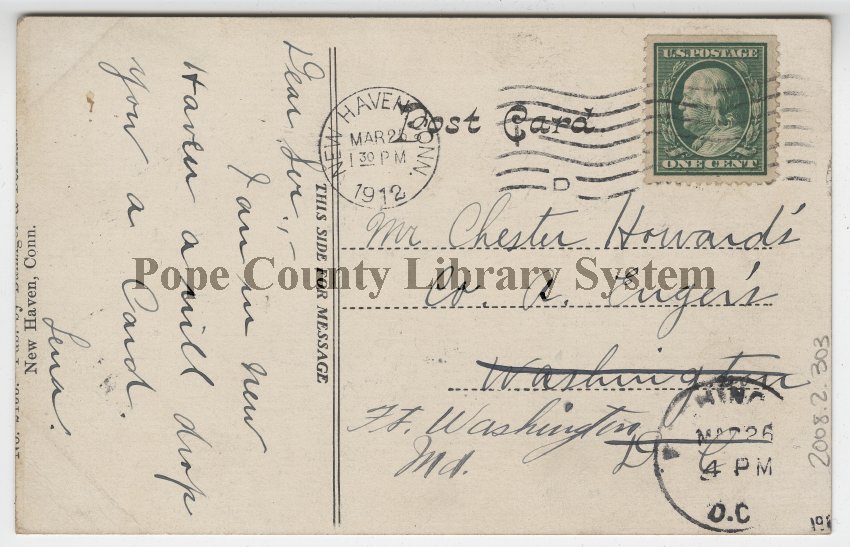 Dear Sir.,-
I am in New
Haven a will drop
you a Card.
Lena.
THIS SIDE FOR MESSAGE
New Haven, Conn.
Post Card.
NEW HAVEN CONN.
MAR 25
1 30 PM
1912
D
U.S. POSTAGE
ONE CENT
Mr Chester Howard's
Co. Enger's
Washington
D. C.
Ft. Washington
Md.
HING
MAR 25
4 PM
D.C
2008.2.303
Pope County Library System